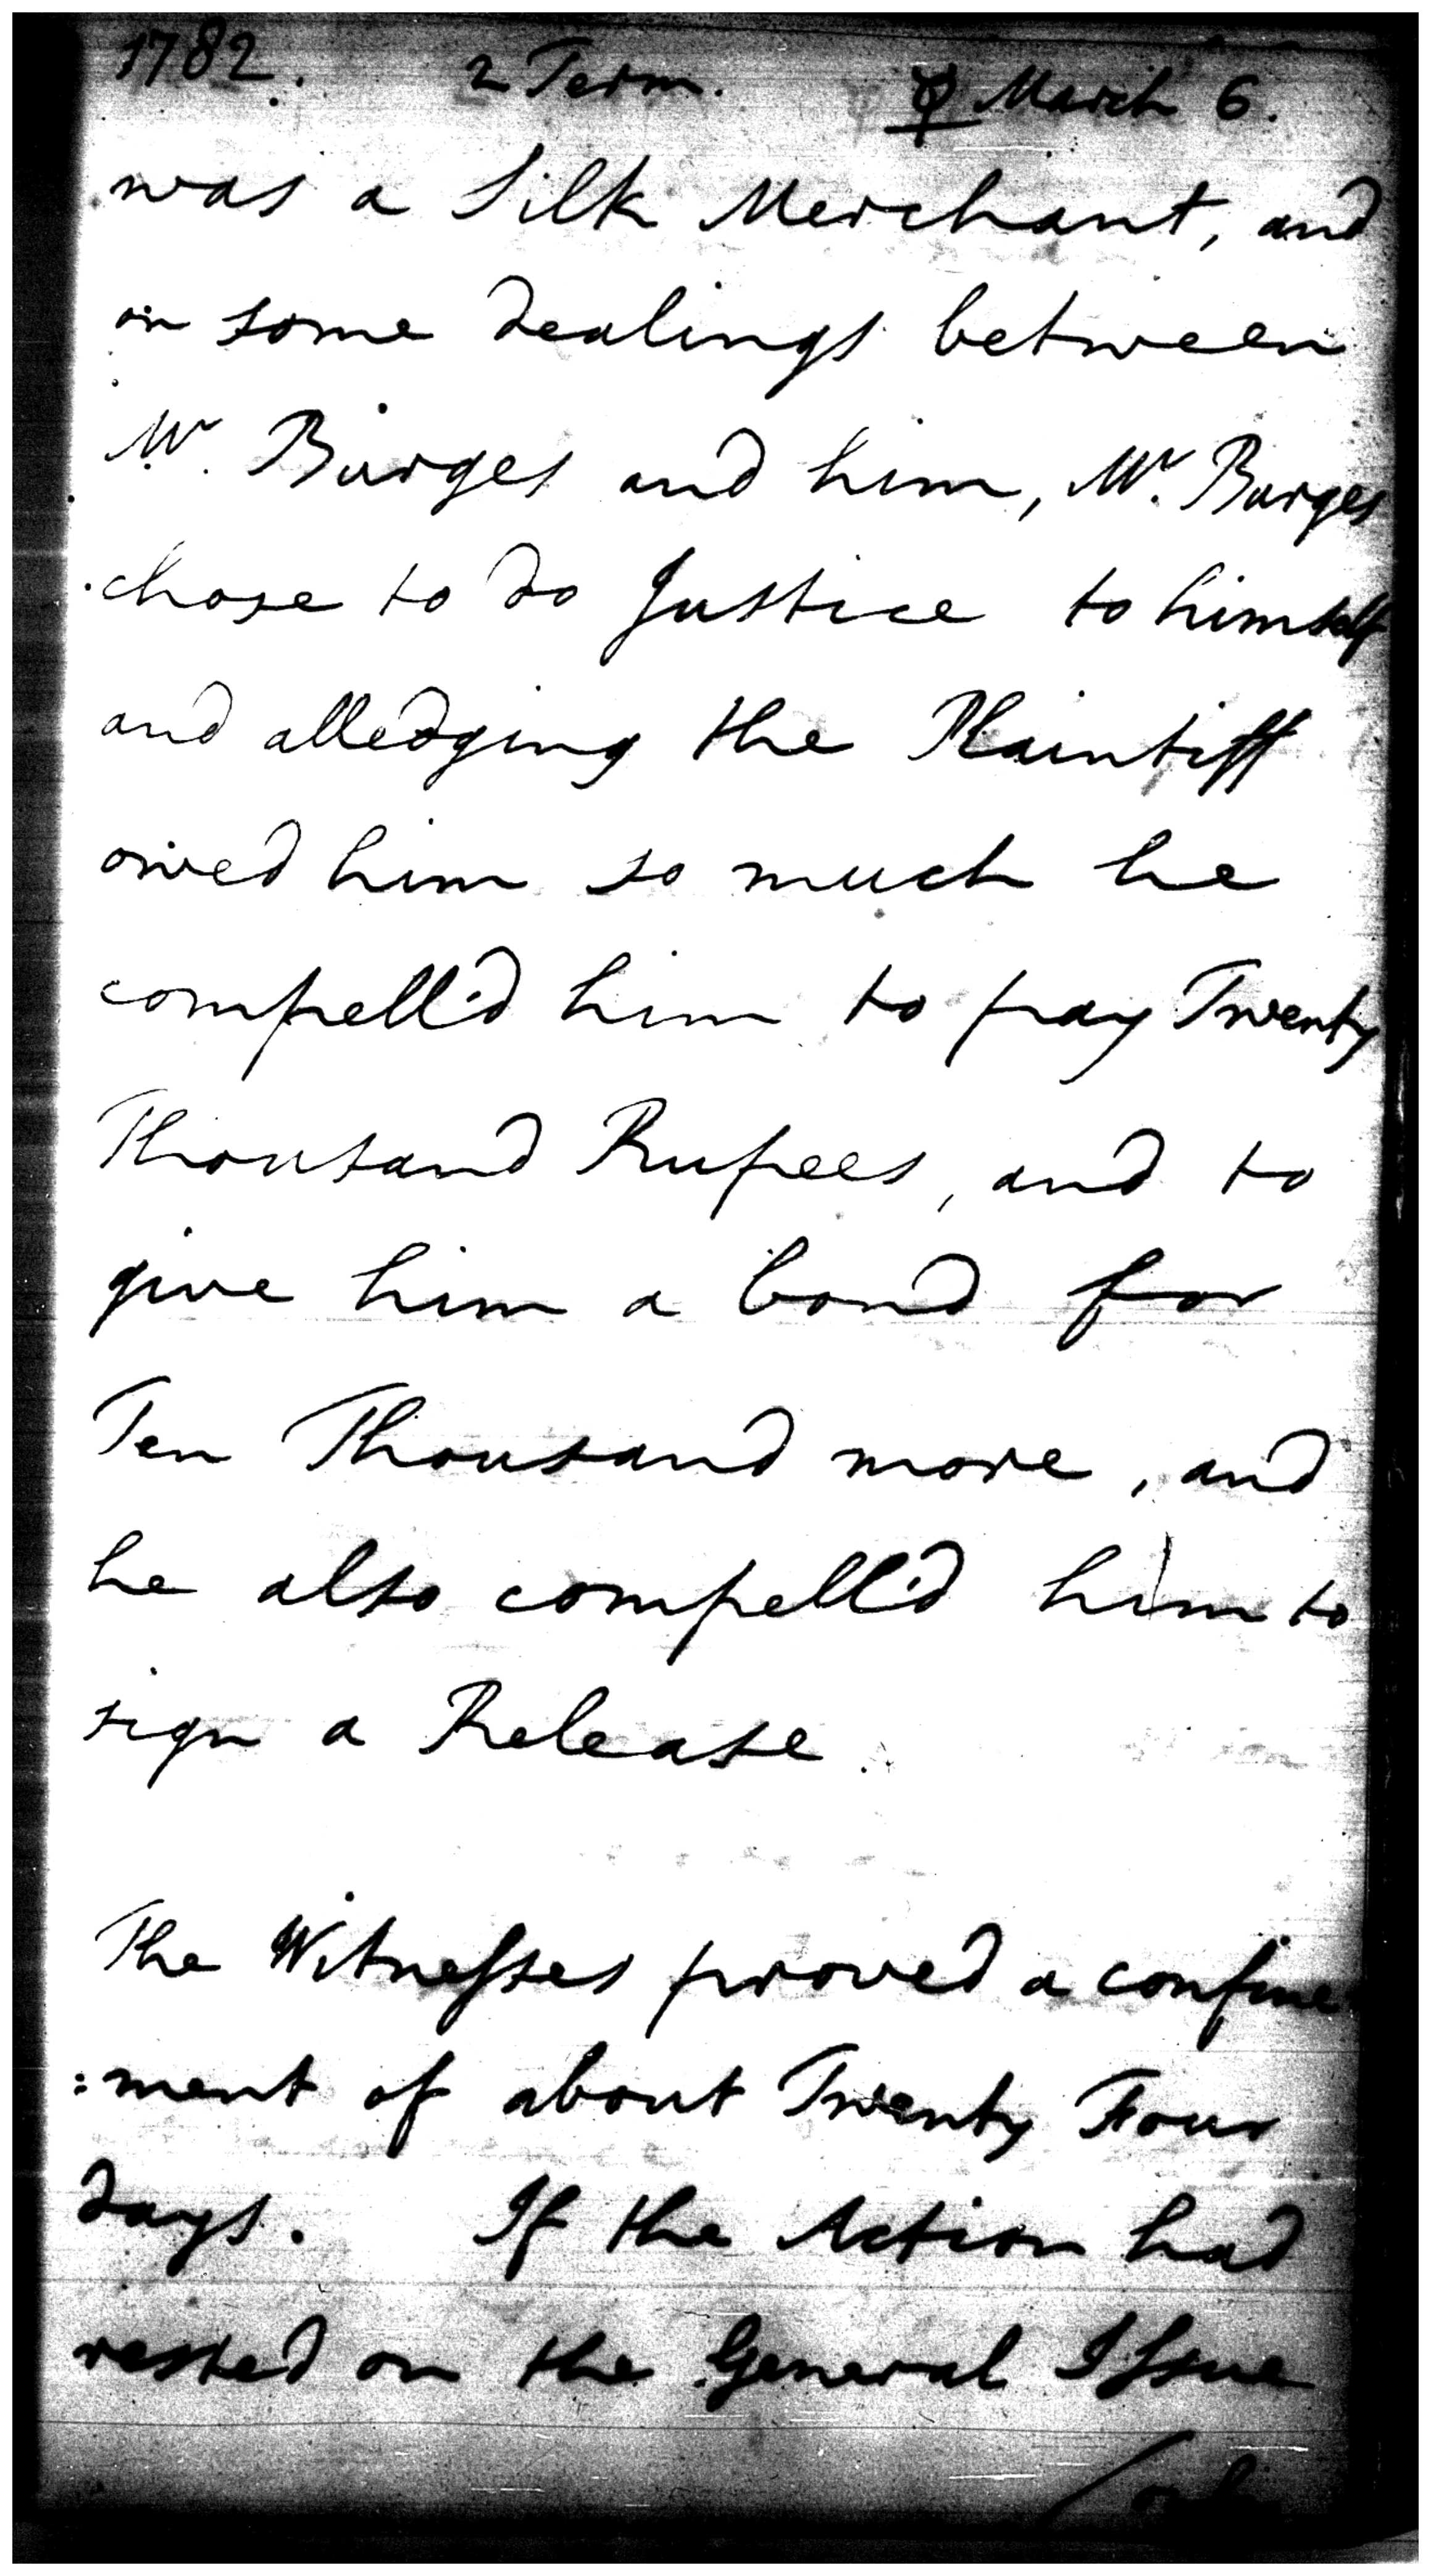 1782. 2 Term. ☿ March 6.
was a Silk Merchant, and
on some dealings between
Mr. Burges and him, Mr. Burges
chose to do Justice to himself
and alledging the Plaintiff
owed him so much he
compell'd him to pay Twenty
Thousand Rupees, and to
give him a bond for
Ten Thousand more, and
he also compell'd him to
sign a Release.
The Witnesses proved a confine
:ment of about Twenty Four
days. If the Action had
rested on the General Issue
only